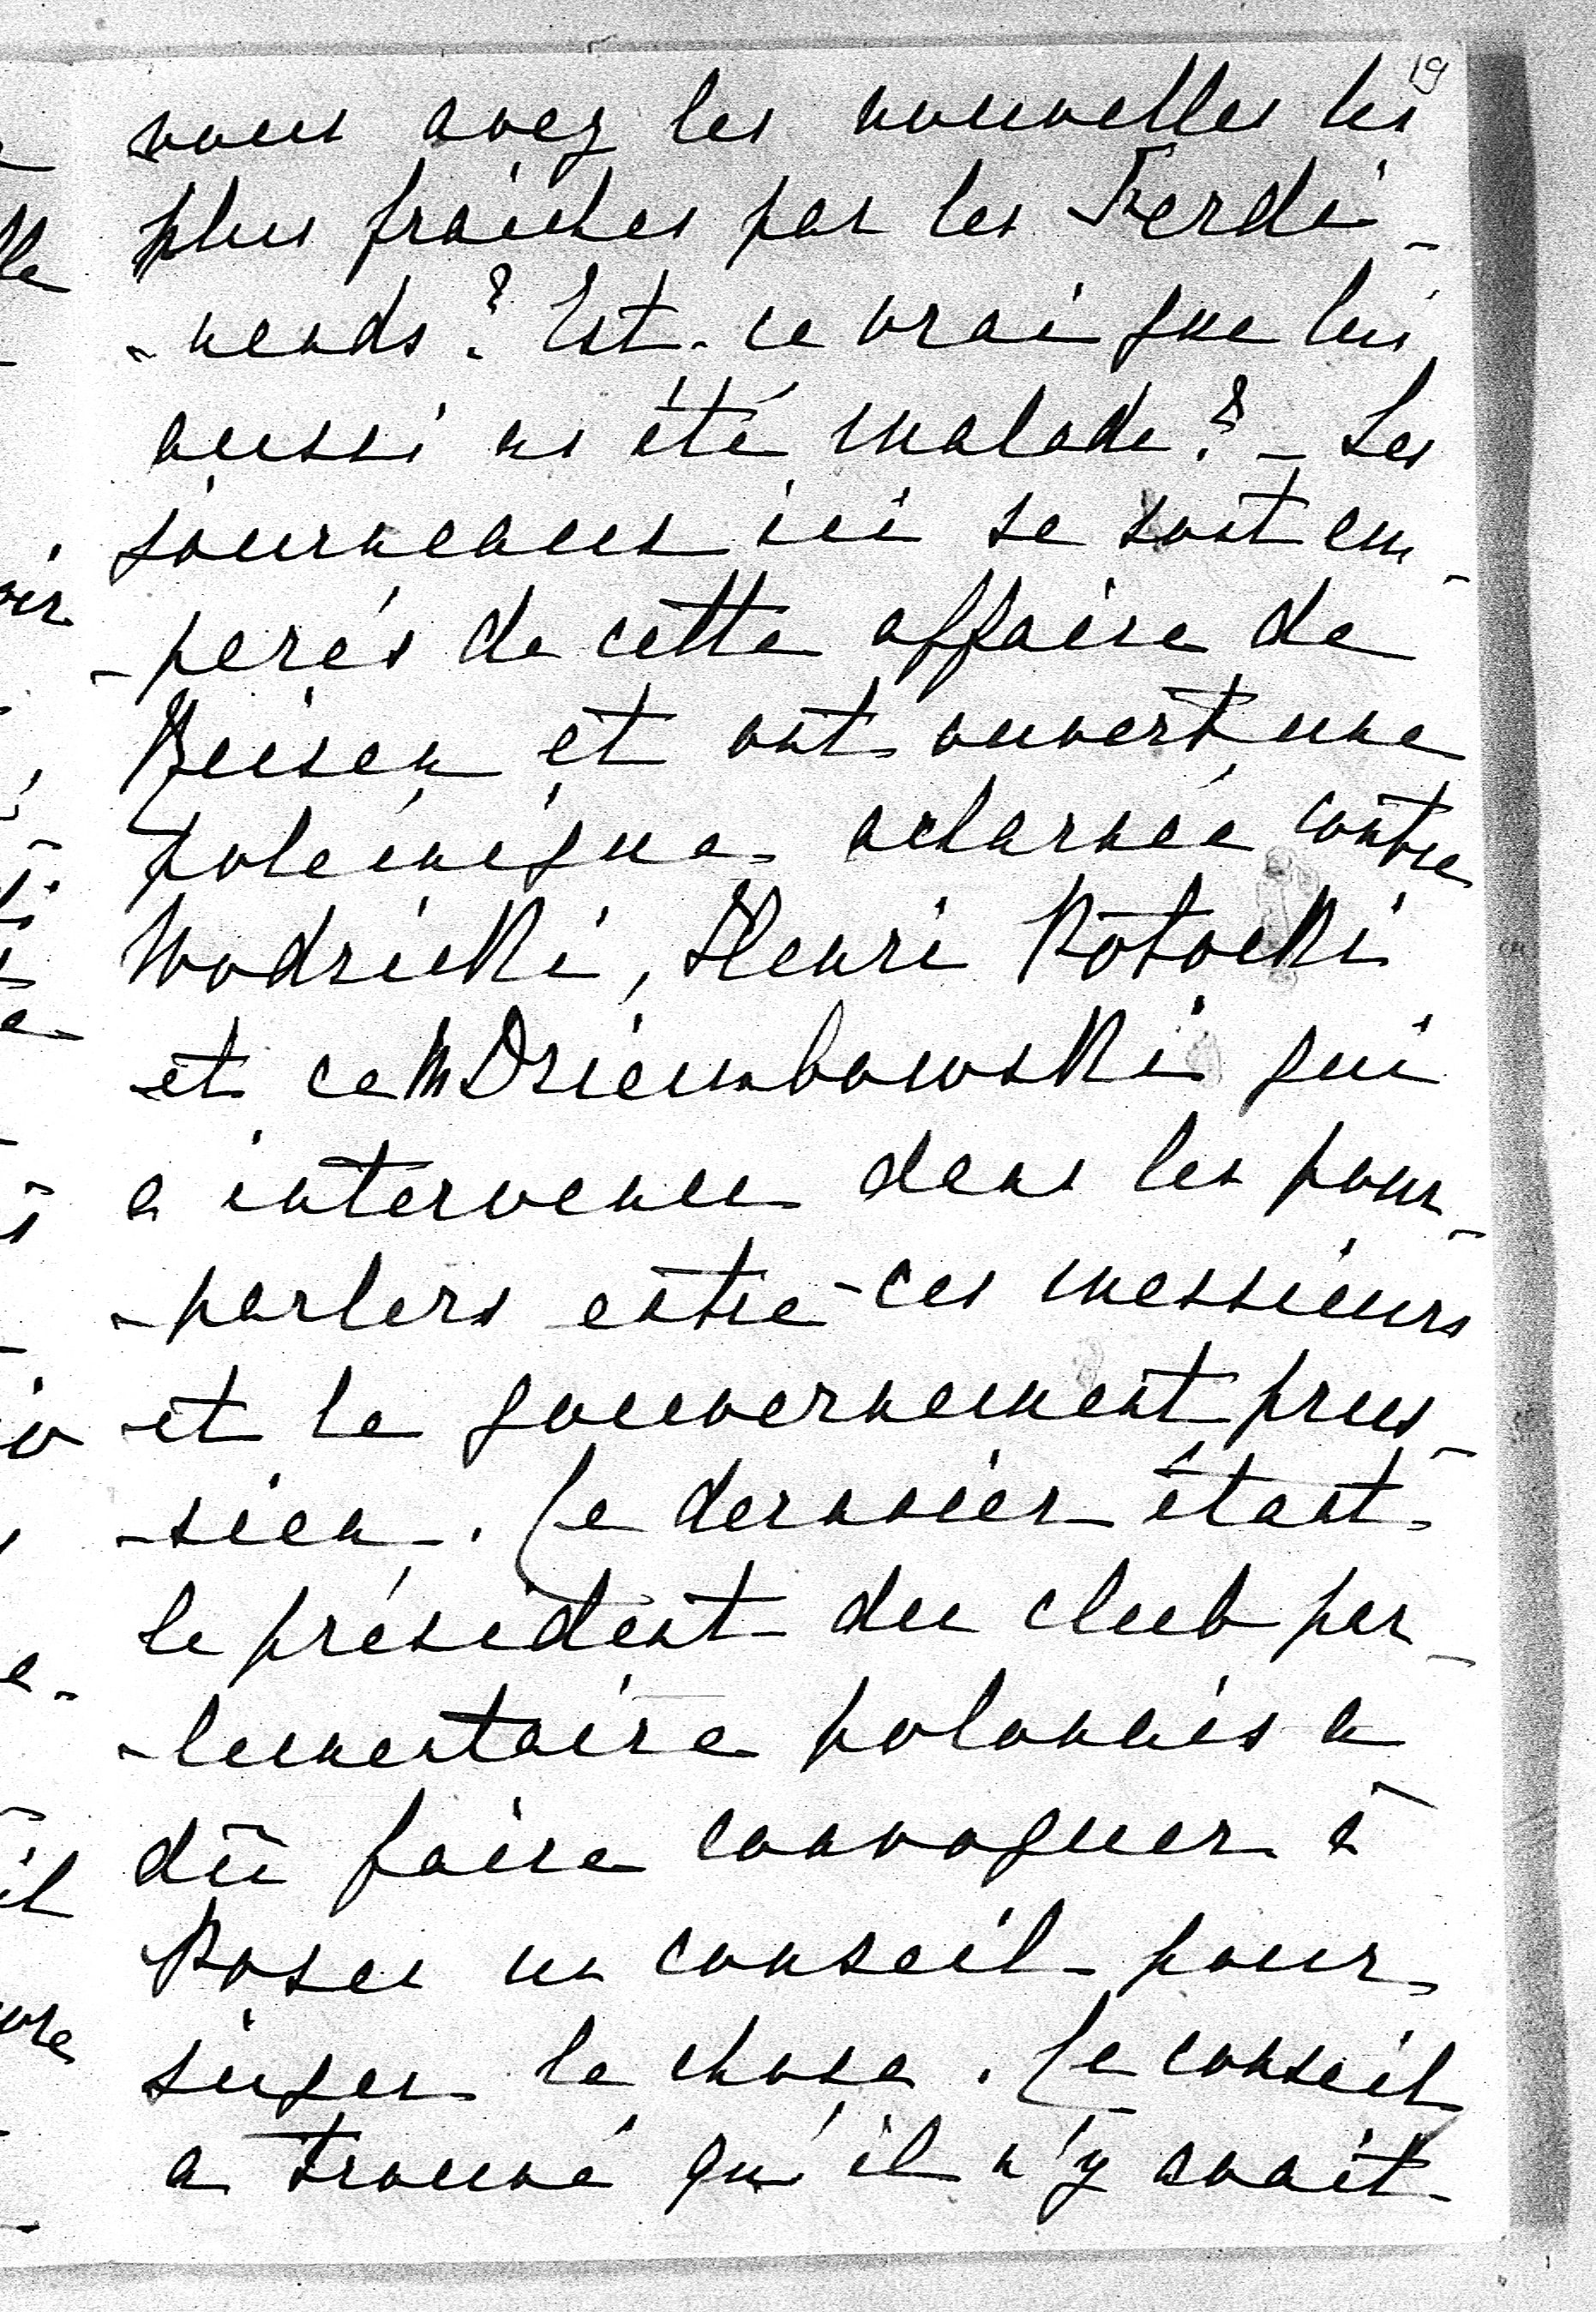 19
vous avez les nouvelles les
plus fraîches par les Ferdi-
-nands? Est-ce vrai que lui
aussi a été malade? - Les
journeaux ici se sont em-
-parés de cette affaire de
Reisen et ont ouvert une
polémique acharnée contre
Wodzicki, Henri Potocki
et ce M Dziembowski qui
a intervenu dans les pour-
-parlers entre ces messieurs
et le gouvernement prus-
-sien. Ce dernier étant
le président du club par-
-lementaire polonais a
dû faire convoquer à
Posen un conseil pour
juger la chose. Le conseil
a trouvé qu'il n'y avait